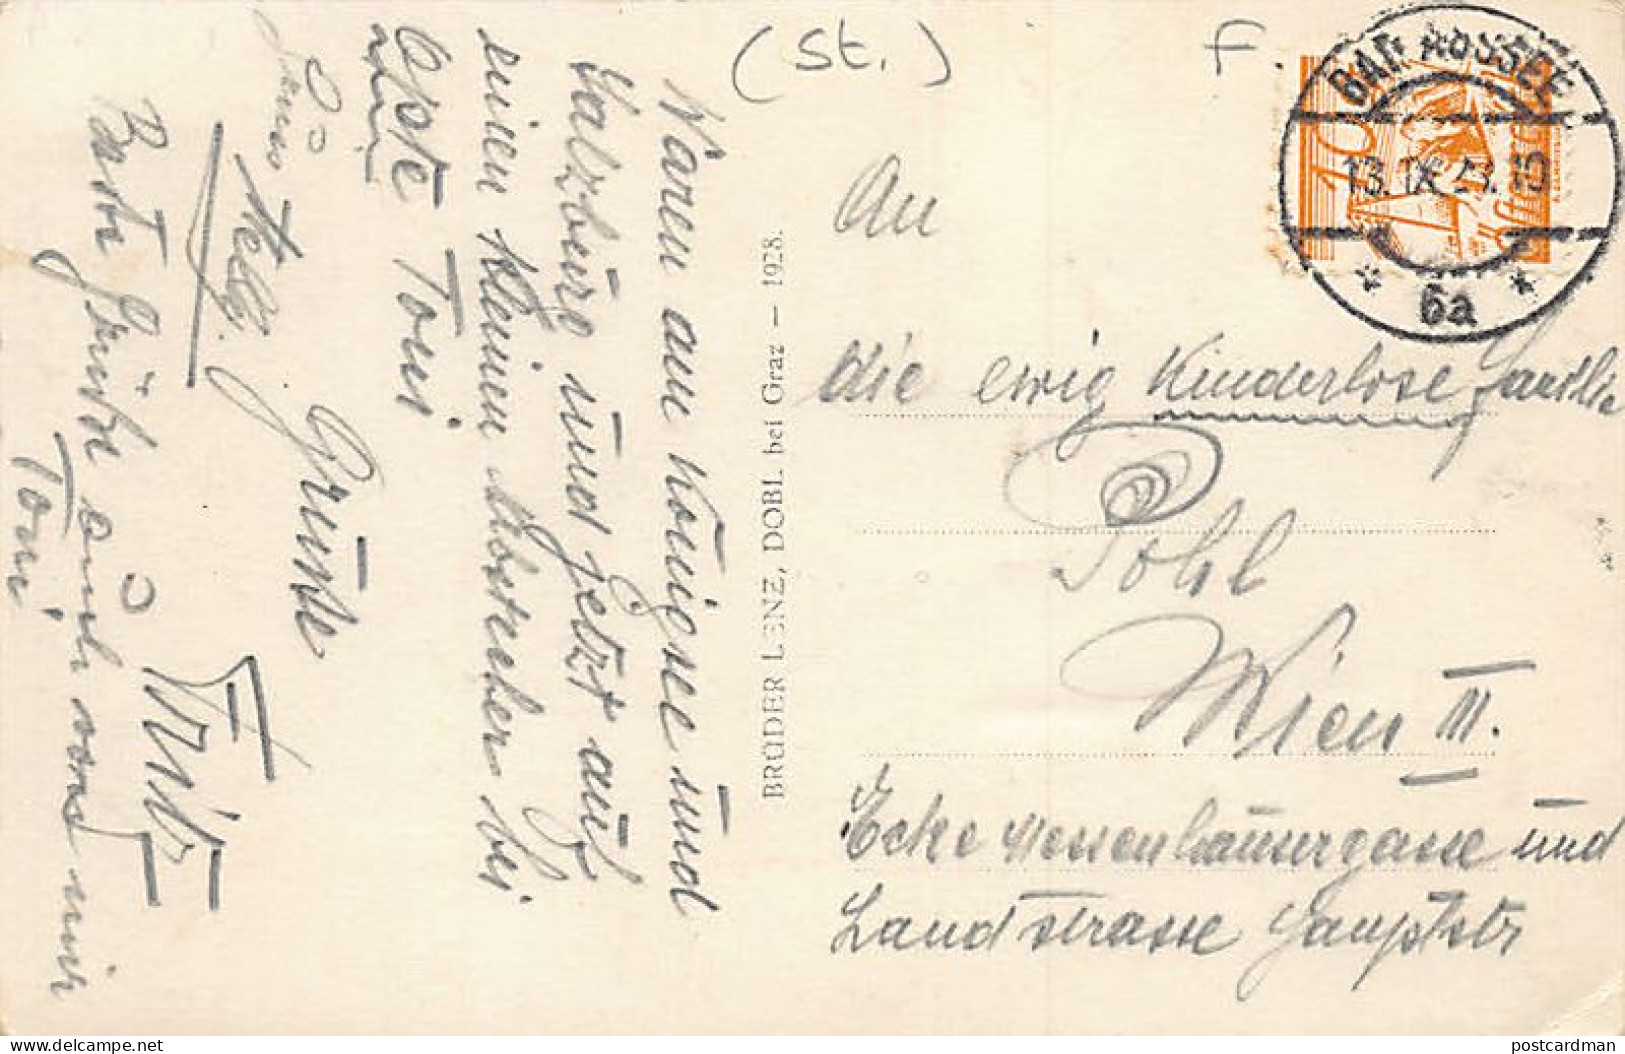 (St.)
F.
BAD AUSSEE
13. IX. 28. 19
6a
10
Waren am Königsee und
Salzburg und jetzt auf
einen kleinen Abstecher bei
Toni
Grüsse
Fritz
Beste Grüße auch von mir
Toni
BRÜDER LENZ, DOBL bei Graz — 1928.
An
die ewig Kinderlose Familie
Pohl
Wien III.
Ecke Messenhausergasse und
Landstrasse Hauptstr
www.delcampe.net
postcardman